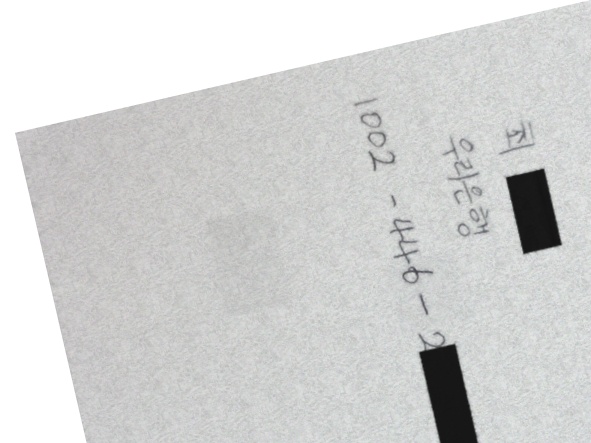 최
우리은행
1002 - 446 - 2